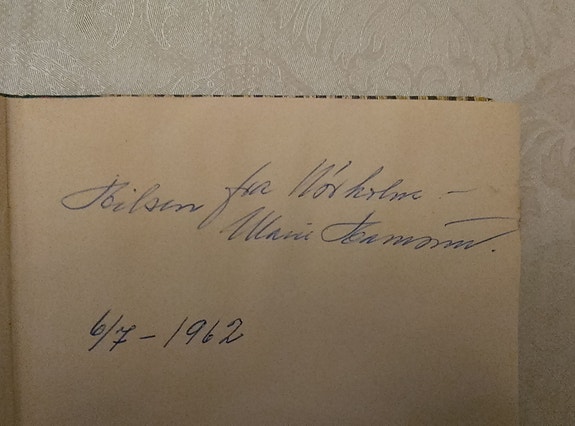 Hilsen fra Nörholm –
Marie Hamsun.
6/7 – 1962